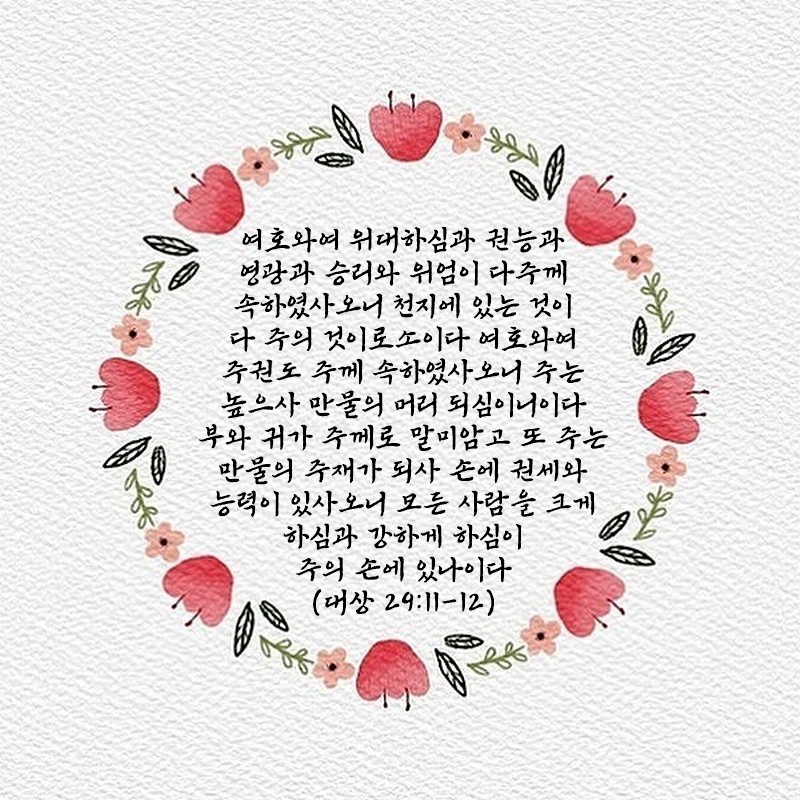 여호와여 위대하심과 권능과
영광과 승리와 위엄이 다주께
속하였사오니 천지에 있는 것이
다 주의 것이로소이다 여호와여
주권도 주께 속하였사오니 주는
높으사 만물의 머리 되심이니이다
부와 귀가 주께로 말미암고 또 주는
만물의 주재가 되사 손에 권세와
능력이 있사오니 모든 사람을 크게
하심과 강하게 하심이
주의 손에 있나이다
(대상 29:11-12)